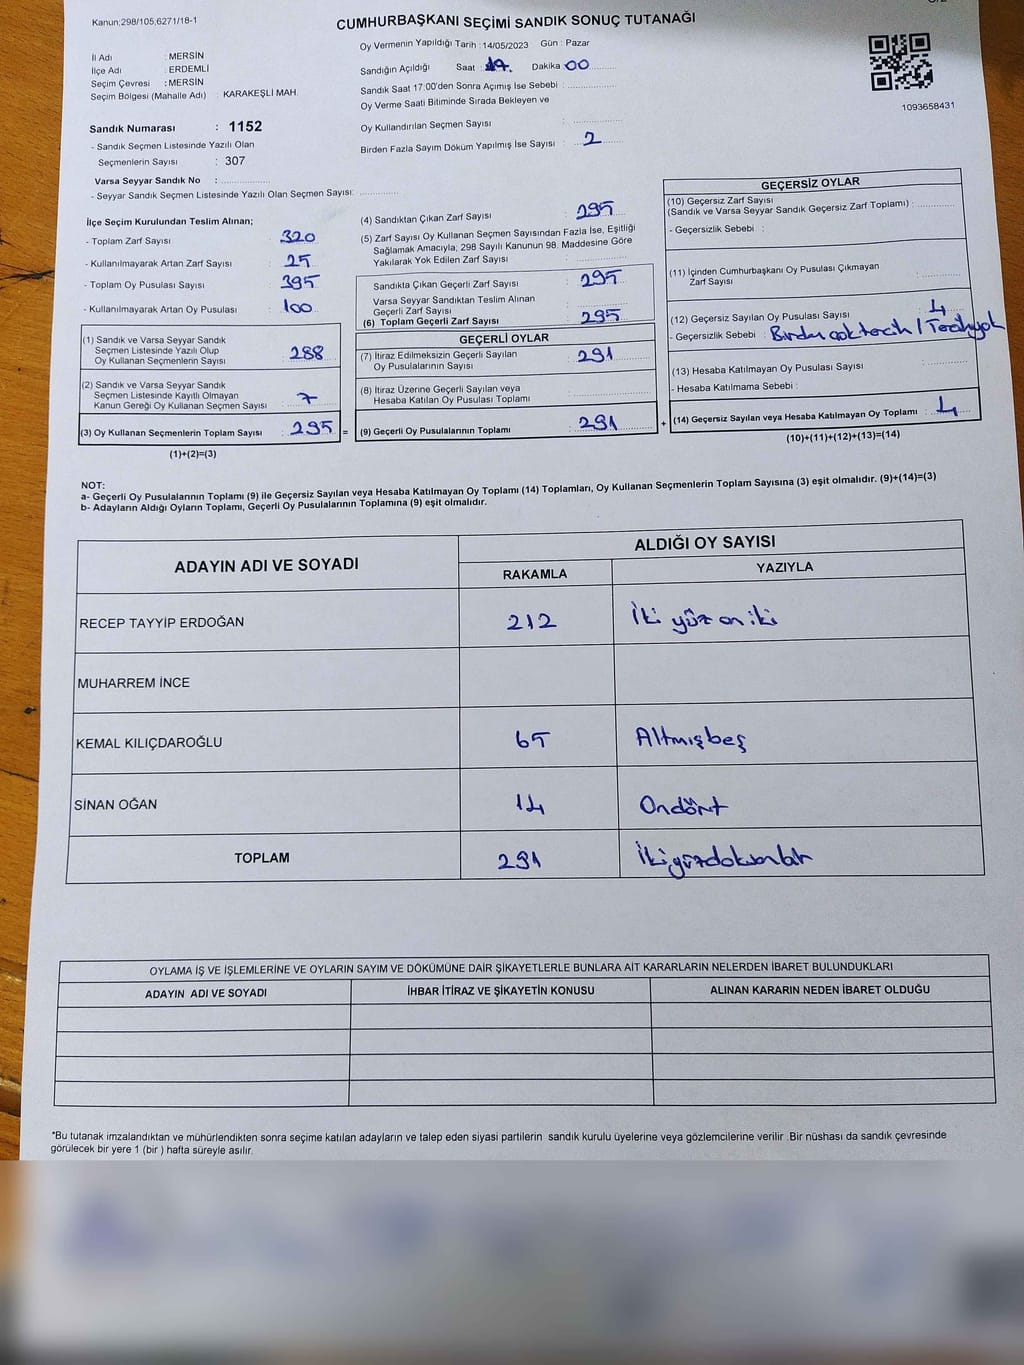 Kanun;298/105,6271/18-1
CUMHURBAŞKANI SEÇİMİ SANDIK SONUÇ TUTANAĞI
İl Adı : MERSİN
İlçe Adı : ERDEMLİ
Seçim Çevresi : MERSİN
Seçim Bölgesi (Mahalle Adı) : KARAKEŞLİ MAH.
Sandık Numarası : 1152
- Sandık Seçmen Listesinde Yazılı Olan
Seçmenlerin Sayısı : 307
Varsa Seyyar Sandık No :
- Seyyar Sandık Seçmen Listesinde Yazılı Olan Seçmen Sayısı:
Oy Vermenin Yapıldığı Tarih : 14/05/2023 Gün : Pazar
Sandığın Açıldığı Saat : 17. Dakika 00
Sandık Saat 17:00'den Sonra Açımış İse Sebebi :
Oy Verme Saati Bitiminde Sırada Bekleyen ve
Oy Kullandırılan Seçmen Sayısı :
Birden Fazla Sayım Döküm Yapılmış İse Sayısı : 2
1093658431
İlçe Seçim Kurulundan Teslim Alınan;
- Toplam Zarf Sayısı : 320
- Kullanılmayarak Artan Zarf Sayısı : 25
- Toplam Oy Pusulası Sayısı : 395
- Kullanılmayarak Artan Oy Pusulası : 100
(1) Sandık ve Varsa Seyyar Sandık
Seçmen Listesinde Yazılı Olup
Oy Kullanan Seçmenlerin Sayısı : 288
(2) Sandık ve Varsa Seyyar Sandık
Seçmen Listesinde Kayıtlı Olmayan
Kanun Gereği Oy Kullanan Seçmen Sayısı : 7
(3) Oy Kullanan Seçmenlerin Toplam Sayısı : 295 =
(1)+(2)=(3)
(4) Sandıktan Çıkan Zarf Sayısı : 295
(5) Zarf Sayısı Oy Kullanan Seçmen Sayısından Fazla İse, Eşitliği
Sağlamak Amacıyla; 298 Sayılı Kanunun 98. Maddesine Göre
Yakılarak Yok Edilen Zarf Sayısı :
Sandıkta Çıkan Geçerli Zarf Sayısı : 295
Varsa Seyyar Sandıktan Teslim Alınan
Geçerli Zarf Sayısı :
(6) Toplam Geçerli Zarf Sayısı : 295
GEÇERLİ OYLAR
(7) İtiraz Edilmeksizin Geçerli Sayılan
Oy Pusulalarının Sayısı : 291
(8) İtiraz Üzerine Geçerli Sayılan veya
Hesaba Katılan Oy Pusulası Toplamı :
(9) Geçerli Oy Pusulalarının Toplamı : 291 +
GEÇERSİZ OYLAR
(10) Geçersiz Zarf Sayısı
(Sandık ve Varsa Seyyar Sandık Geçersiz Zarf Toplamı) :
- Geçersizlik Sebebi :
(11) İçinden Cumhurbaşkanı Oy Pusulası Çıkmayan
Zarf Sayısı :
(12) Geçersiz Sayılan Oy Pusulası Sayısı : 4
- Geçersizlik Sebebi : Birden çok tercih / Tercih yok
(13) Hesaba Katılmayan Oy Pusulası Sayısı :
- Hesaba Katılmama Sebebi :
(14) Geçersiz Sayılan veya Hesaba Katılmayan Oy Toplamı : 4
(10)+(11)+(12)+(13)=(14)
NOT:
a- Geçerli Oy Pusulalarının Toplamı (9) ile Geçersiz Sayılan veya Hesaba Katılmayan Oy Toplamı (14) Toplamları, Oy Kullanan Seçmenlerin Toplam Sayısına (3) eşit olmalıdır. (9)+(14)=(3)
b- Adayların Aldığı Oyların Toplamı, Geçerli Oy Pusulalarının Toplamına (9) eşit olmalıdır.
ADAYIN ADI VE SOYADI ALDIĞI OY SAYISI
RAKAMLA YAZIYLA
RECEP TAYYİP ERDOĞAN 212 İki yüz on iki
MUHARREM İNCE
KEMAL KILIÇDAROĞLU 65 Altmışbeş
SİNAN OĞAN 14 Ondört
TOPLAM 291 İkiyüzdoksanbir
OYLAMA İŞ VE İŞLEMLERİNE VE OYLARIN SAYIM VE DÖKÜMÜNE DAİR ŞİKAYETLERLE BUNLARA AİT KARARLARIN NELERDEN İBARET BULUNDUKLARI
ADAYIN ADI VE SOYADI İHBAR İTİRAZ VE ŞİKAYETİN KONUSU ALINAN KARARIN NEDEN İBARET OLDUĞU
*Bu tutanak imzalandıktan ve mühürlendikten sonra seçime katılan adayların ve talep eden siyasi partilerin sandık kurulu üyelerine veya gözlemcilerine verilir .Bir nüshası da sandık çevresinde
görülecek bir yere 1 (bir ) hafta süreyle asılır.